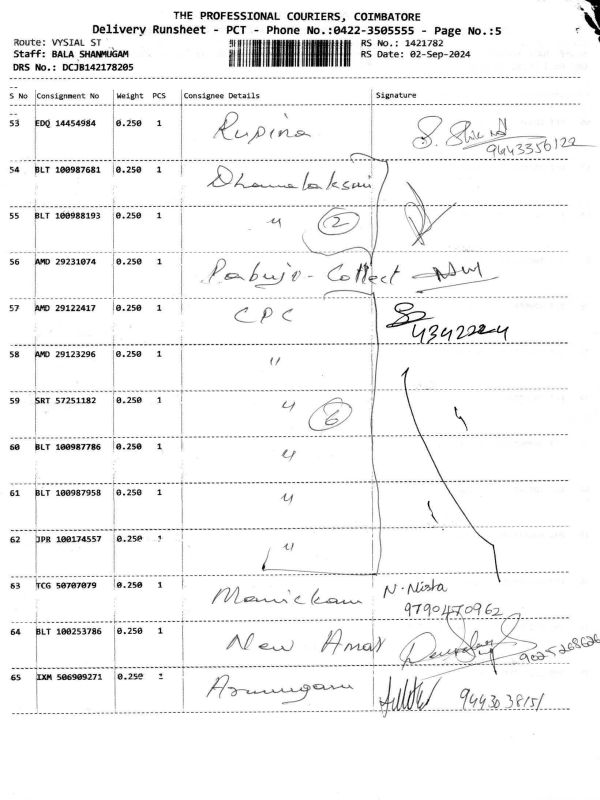 THE PROFESSIONAL COURIERS, COIMBATORE
Delivery Runsheet - PCT - Phone No.:0422-3505555 - Page No.:5
Route: VYSIAL ST RS No.: 1421782
Staff: BALA SHANMUGAM RS Date: 02-Sep-2024
DRS No.: DCJB142178205
S No Consignment No Weight PCS Consignee Details Signature
53 EDQ 14454984 0.250 1 Rupina 9443356122
54 BLT 100987681 0.250 1 Dhanalaksmi
55 BLT 100988193 0.250 1 " 2
56 AMD 29231074 0.250 1 Collect
57 AMD 29122417 0.250 1 CPC 4342224
58 AMD 29123296 0.250 1 "
59 SRT 57251182 0.250 1 " 6
60 BLT 100987786 0.250 1 "
61 BLT 100987958 0.250 1 "
62 JPR 100174557 0.250 1 "
63 TCG 50707079 0.250 1 Manickam N. Nista
9790470962
64 BLT 100253786 0.250 1 New Amat 9025268626
65 IXM 506909271 0.250 1 Arumugam 9443038151